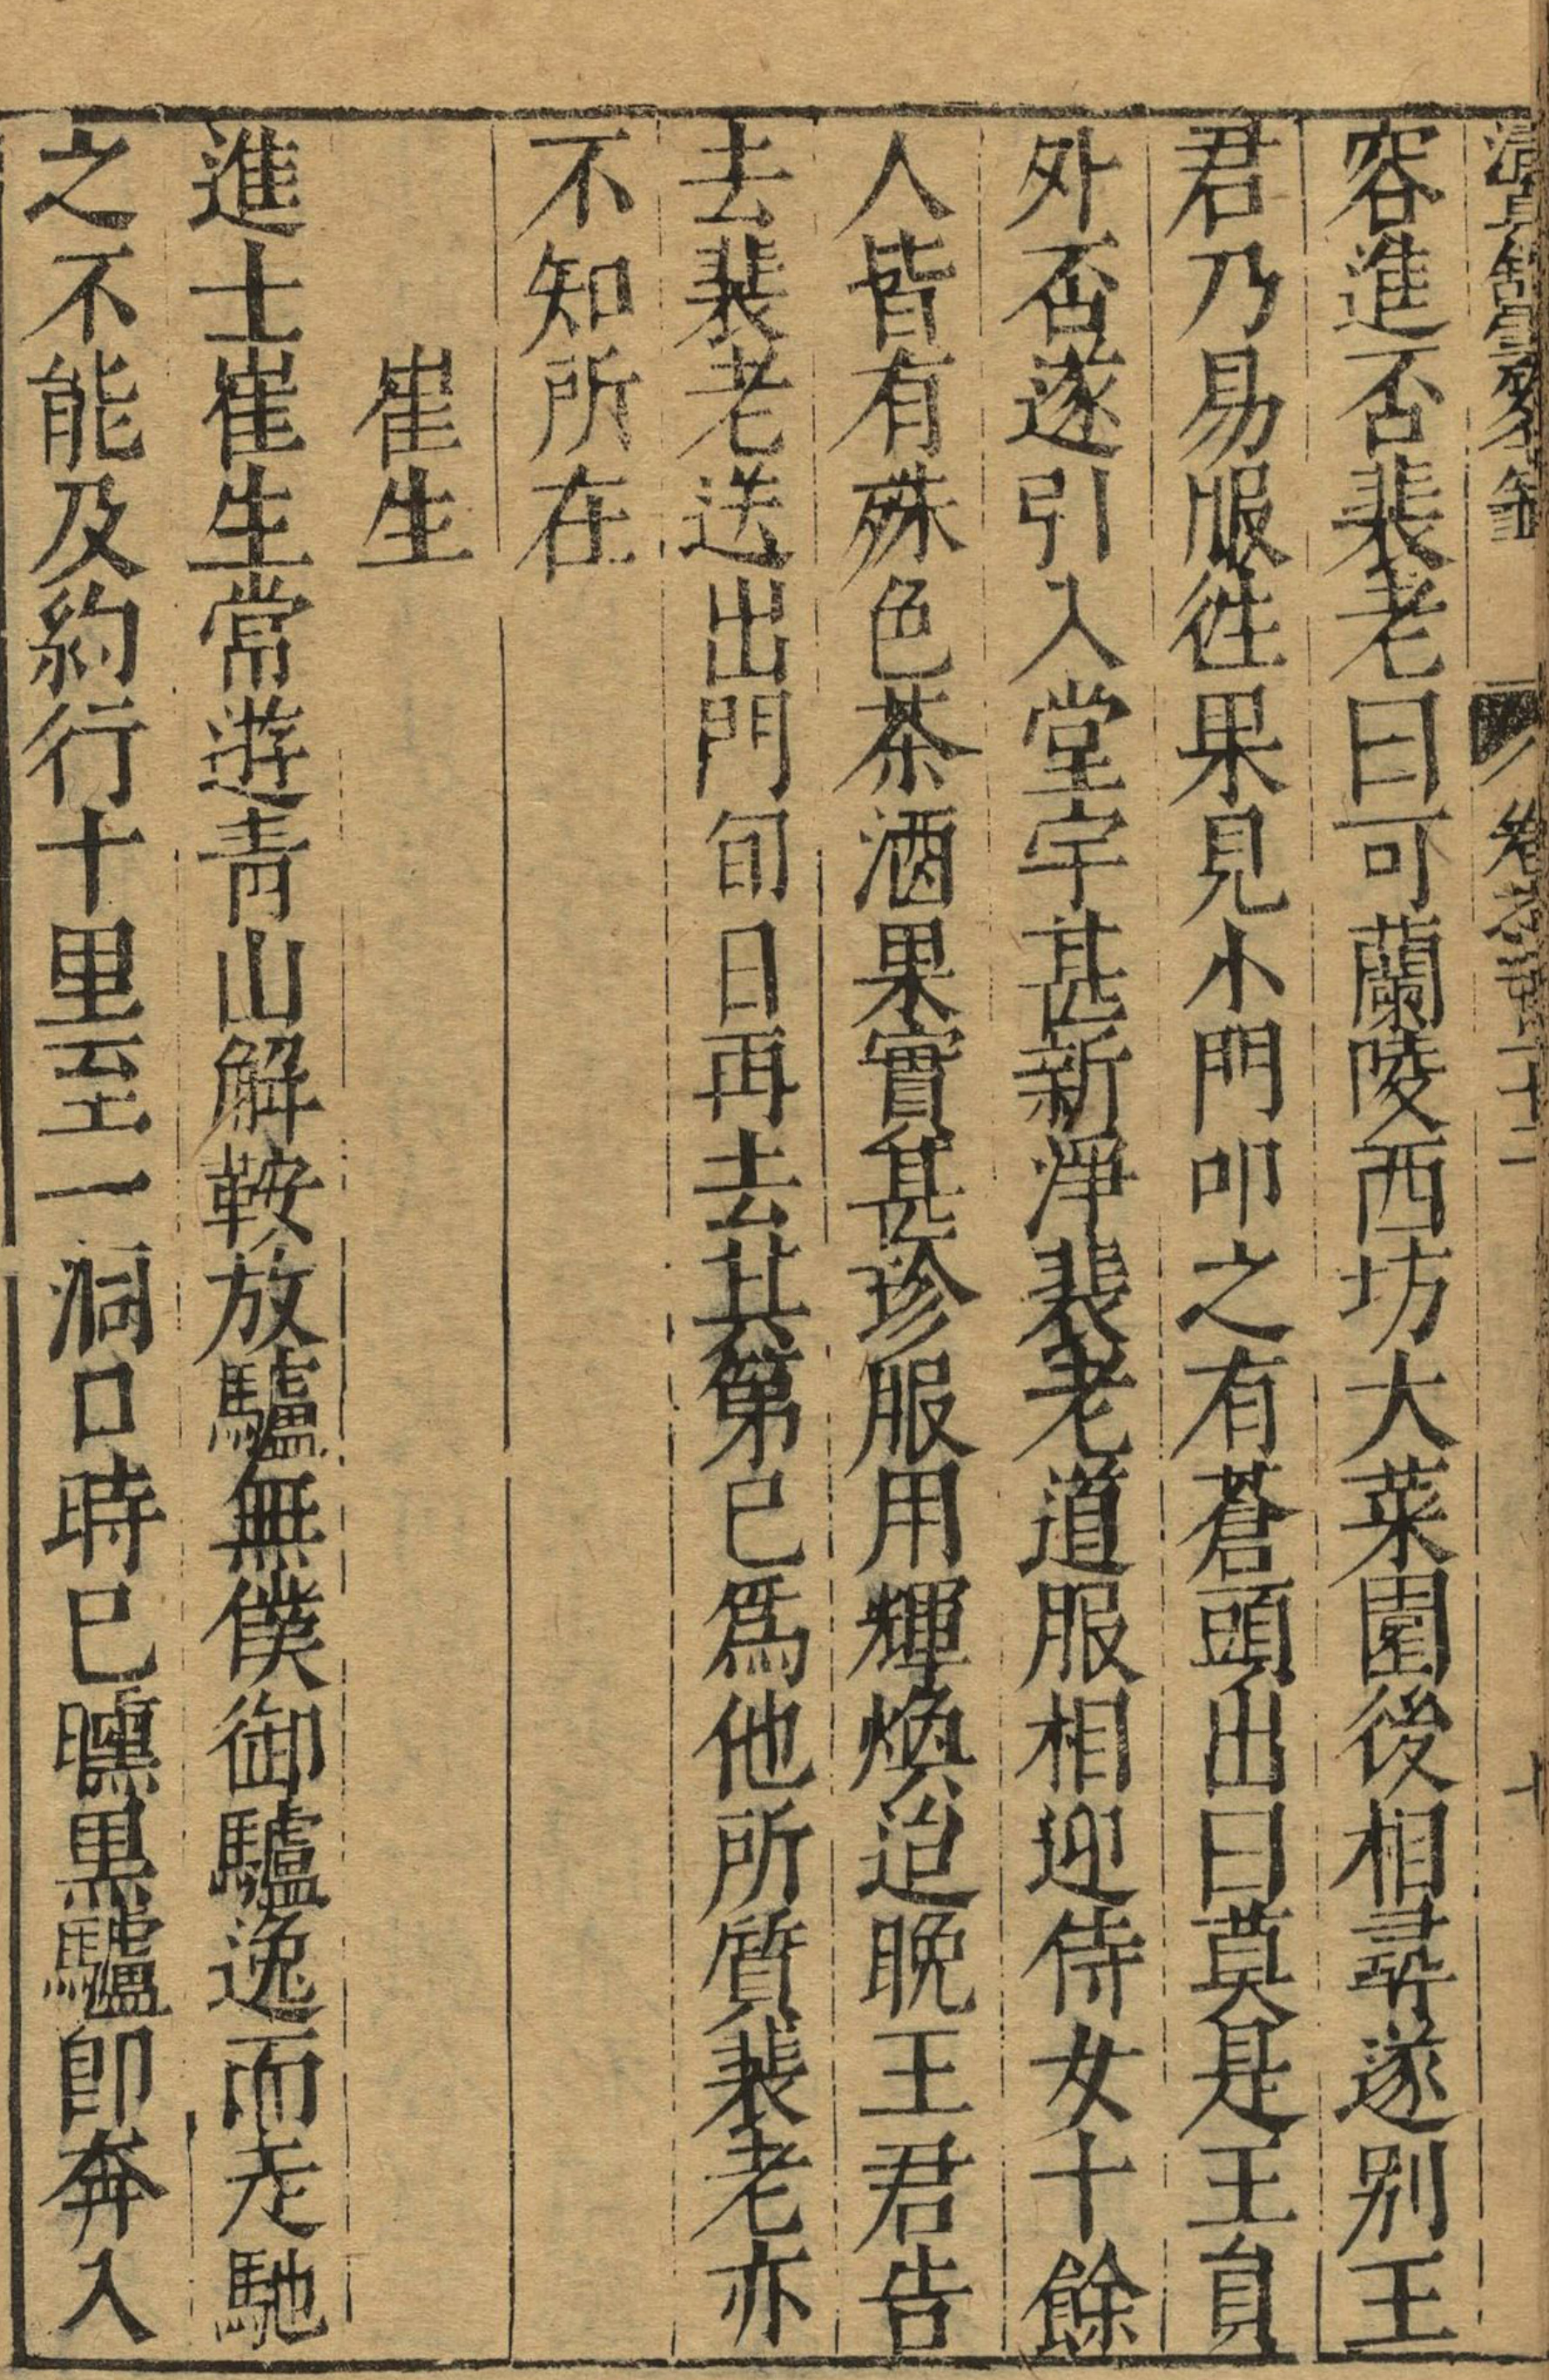 卷之二十二
容進否裴老曰可蘭陵西坊大菜園後相尋遂别王
君乃易服徃果見小門叩之有蒼頭出曰莫是王員
外否遂引入堂宇甚新淨裴老道服相迎侍女十餘
人皆有殊色茶酒果實甚珍服用輝煥迨晚王君告
去裴老送出門旬日再去其第已爲他所質裴老亦
不知所在
崔生
進士崔生常遊青山解鞍放驢無僕御驢逸而走馳
之不能及約行十里至一洞口時已曛黑驢即奔入